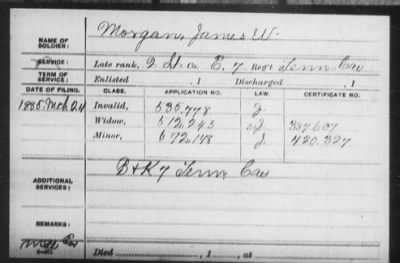 NAME OF SOLDIER: Morgan, James W.
SERVICE: Late rank, 2 Lt. Co. E, 7 Reg't Tenn Cav
TERM OF SERVICE: Enlisted , 1 Discharged , 1
DATE OF FILING. CLASS. APPLICATION NO. LAW. CERTIFICATE NO.
1885 Mch 24 Invalid, 535,778 J
Widow, 512,245 J 337607
Minor, 672,148 J 420,327
ADDITIONAL SERVICES: B & K 7 Tenn Cav
REMARKS:
Died , 1 , at